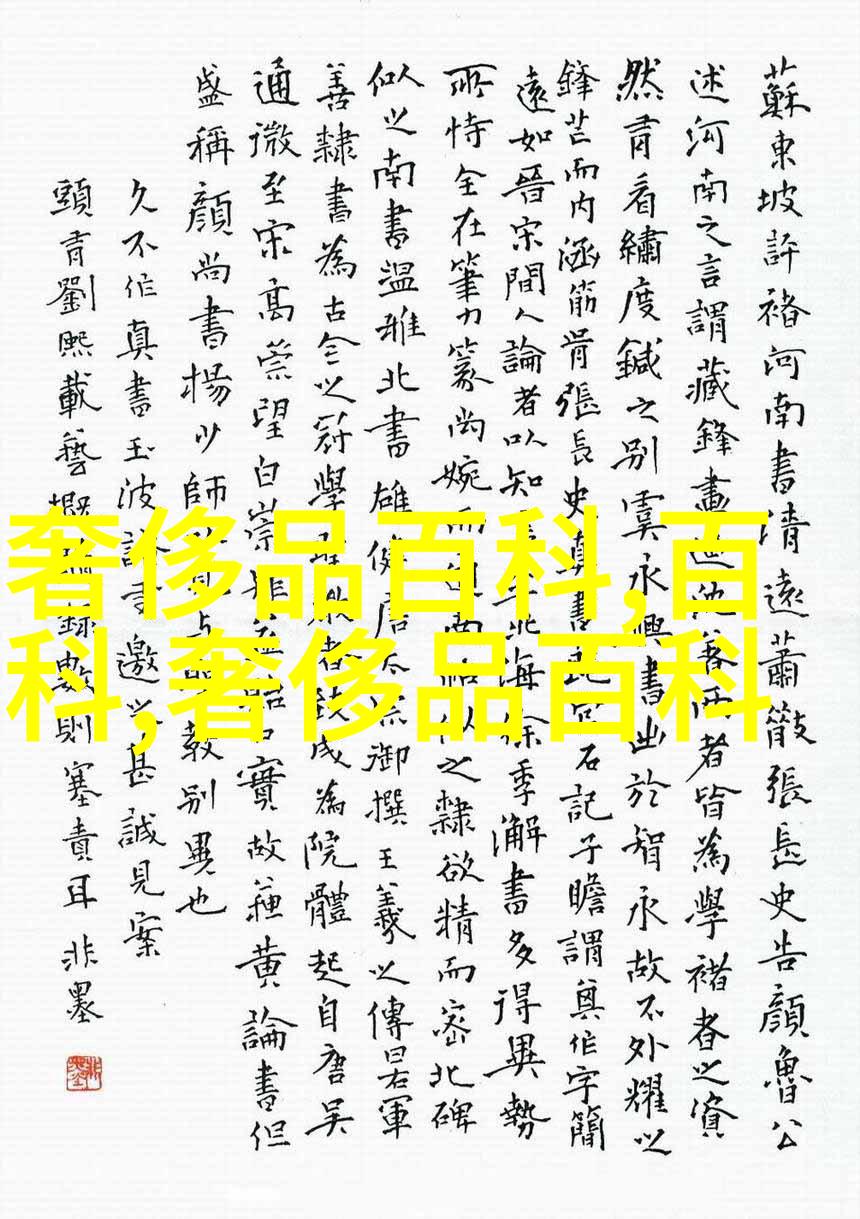 蘇東坡評褚河南書清遠蕭散張長史告顏魯公
述河南之言謂藏鋒畫
者皆為學褚者之資
然有看繡度鍼之別虞永興書出於智永故不外耀以
鋒芒而內涵筋骨張長史真書
石記子瞻謂其作字簡
遠如晉宋間人論者以知
北海徐季海書多得異勢
所恃全在筆力篆尚婉而
似之隸欲精而密北碑
似之南書溫雅北書雄健唐太宗御撰王羲之傳曩軍
善隸書為古今之冠學
者致成為院體起自唐吳
通微至宋高崇望白崇
實故蘇黃論書但
盛稱顏尚書楊少師
較別異也
久不作真書玉波
邀之甚誠見案
頭有劉熙載藝概
錄數則塞責耳 非墨
奢侈品百科,百
科,奢侈品百科